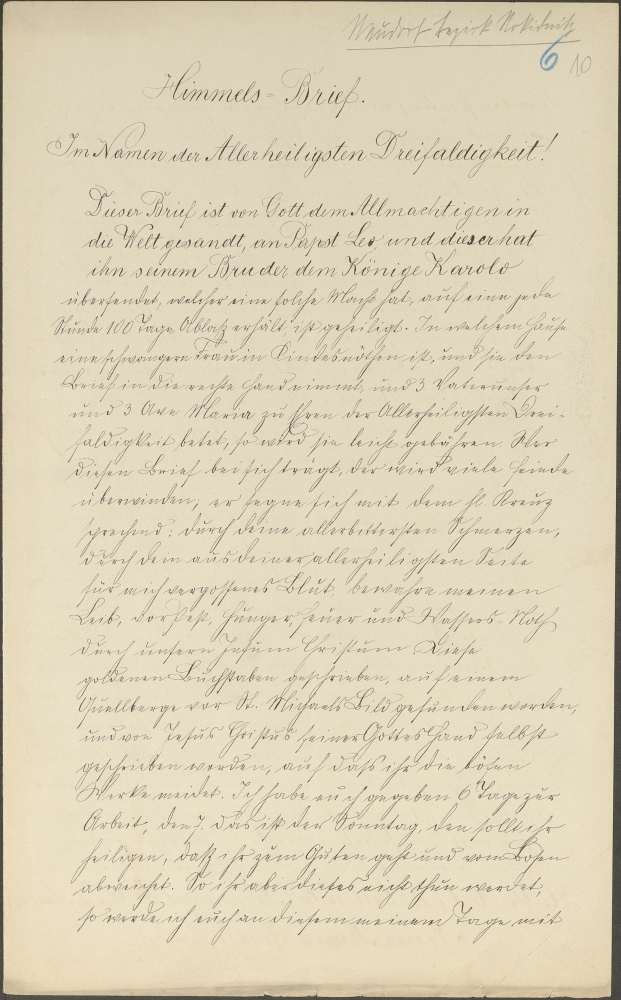 Neudorf Bezirk Rokitnitz
6 10
Himmels-Brief.
Im Namen der Allerheiligsten Dreifaldigkeit!
Dieser Brief ist von Gott dem Allmachtigen in
die Welt gesandt, an Papst Leo, und dieser hat
ihn seinem Bruder dem Könige Karolo
übersendet, welcher eine solche Macht hat, auf eine jede
Stunde 100 Tage Ablaß erhält ist geheiligt. In welchem Hause
eine schwangere Frau in Kindesnöthen ist, und sie den
Brief in die rechte Hand nimmt, und 3 Vaterunser
und 3 Ave Maria zu Ehren der Allerheiligsten Drei-
faldigkeit betet, so wird sie leicht gebähren. Wer
diesen Brief bei sich trägt, der wird viele Feinde
überwinden, er segne sich mit dem hl. Kreuz
sprechend: durch deine allerbittersten Schmerzen,
durch dein aus deiner allerheiligsten Seite
für mich vergossenes Blut, bewahre meinen
Leib, vor Pest, Hunger, Feuer und Wassers-Noth
durch unsern Jesum Christum. Diese
goldenen Buchstaben geschrieben, auf einem
Quellberge vor St. Michaels Bild gefunden worden,
und von Jesus Christus seiner Gottes Hand selbst
geschrieben worden, auf dass ihr die bösen
Werke meidet. Ich habe euch gegeben 6 Tage zur
Arbeit, den 7. das ist der Sonntag, den sollt ihr
heiligen, daß ihr zum Guten geht und vom Bösen
abweichet. So ihr aber dieses nicht thun werdet,
so werde ich euch an diesem meinem Tage mit